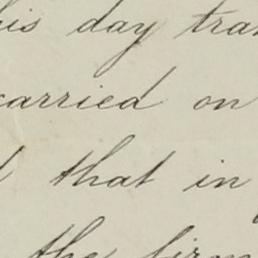 his day tran
carried on
that in
the firm